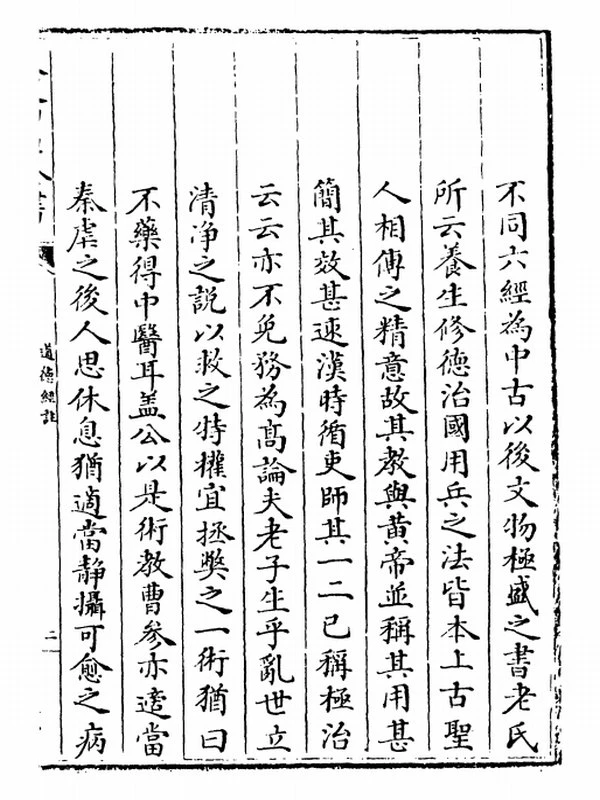 不同六經為中古以後文物極盛之書老氏
所云養生修德治國用兵之法皆本上古聖
人相傳之精意故其教與黄帝並稱其用甚
簡其效甚速漢時循吏師其一二已稱極治
云云亦不免務為髙論夫老子生乎亂世立
清净之説以救之特權宜拯弊之一術猶曰
不藥得中醫耳盖公以是術教曹參亦適當
秦虐之後人思休息猶適當静攝可愈之病
道德經註
二